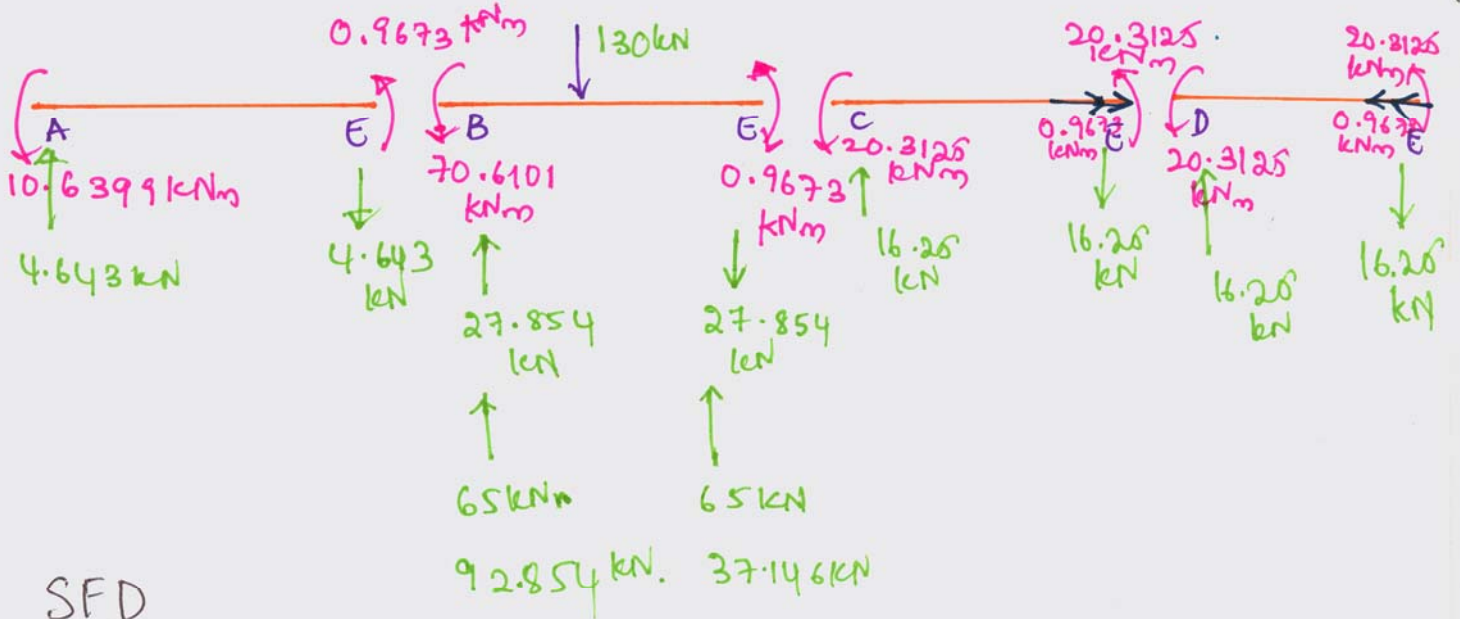 0.9673 kNm
130kN
20.3125 kNm
20.3125 kNm
A
E
B
E
C
E
D
E
10.6399 kNm
70.6101 kNm
0.9673 kNm
20.3125 kNm
0.9673 kNm
20.3125 kNm
0.9673 kNm
4.643 kN
4.643 kN
27.854 kN
27.854 kN
16.25 kN
16.25 kN
16.25 kN
16.25 kN
65 kNm
65 kN
92.854 kN.
37.146 kN
SFD